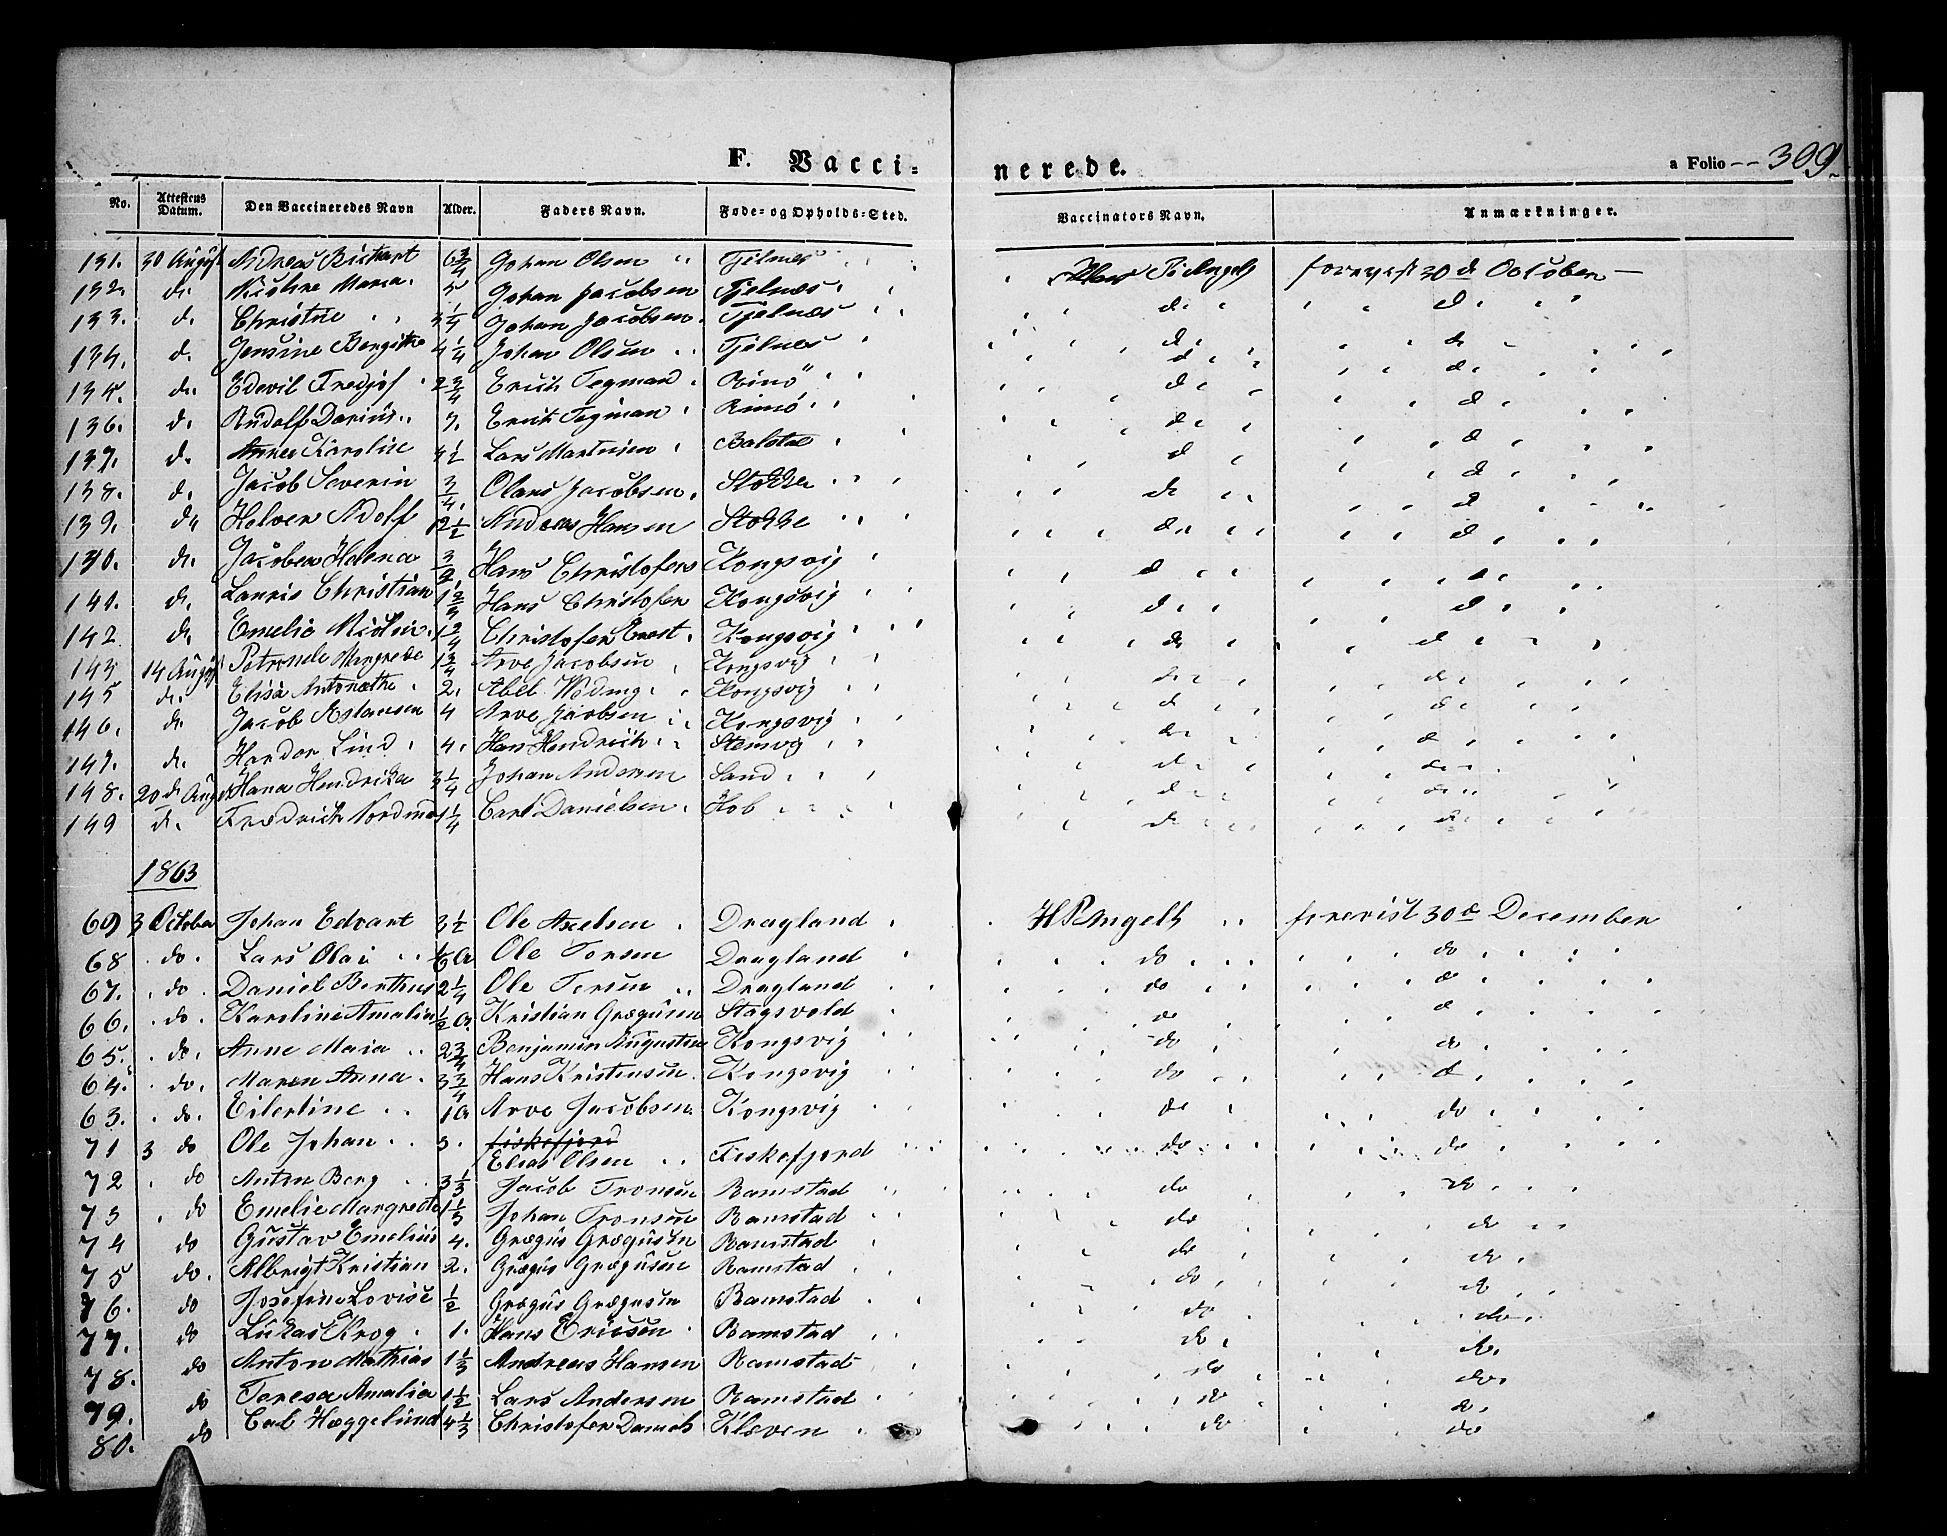 F. Vacci-
nerede.
a Folio -- 309.
No. Attestens Datum. Den Vaccineredes Navn Alder. Faders Navn. Føde- og Opholds-Sted. Vaccinators Navn. Anmærkninger.
131. 30 August Andreas Bichart 6 3/4 Johan Olsen Tjelnes forevist 30 d October
132. d. Nicoline Maria 5 Johan Jacobsen Tjelnæs d. d.
133. d. Christine 3 1/4 Johan Jacobsen Tjelnæs d. d
134. d. Jensine Bergitte 4 1/4 Johan Olsen Tjelnes d. d.
135. d. Edevil Fredjof 2 3/4 Erich Tegman Rinø d. d.
136. d. Rudolf Darius 7. Erich Tegman Rinø d. d
137. d. Annes Karoline 3 1/2 Lars Martinsen Balstad d d
138. d. Jacob Severin 3/4. Olaus Jacobsen Stokke d. d
139. d. Halver Adolf 2 1/2 Andreas Hansen Stokke d. d
130. d. Jacobea Helena 3/2 Hans Christofers Kongsvig d d.
141. d. Lauris Christian 1 2/3 Hans Christofer Kongsvig d. d.
142 d. Emelie Nicolin 1 2/4 Christofer Ernst Kongsvig d. d
143 14 August Petronele Margrede 1 3/4 Arve Jacobsen Kongsvig d. d.
145 d. Elisa Antonette 2. Abel Kongsvig d d.
146. d. Jacob Aslaksen 4 Arve Jacobsen Kongsvig d. d
147. d. Hardor Lind 4. Hans Hendrich Stensvig d. d
148. 20 d August Hana Hendrika 3 1/4 Johan Andersen Sand d. d.
149 d. Fredrich Nordmo 1 1/4 Carl Danielsen Hob d. d
1863
69 3 October Johan Edvart 3 1/2 Ole Axelsen Dragland H P Angell forevist 30 d December
68 do. Lars Olai 1/6 a Ole Torsen Dragland do do
67. do Daniel Berthus 2 1/4 Ole Torsen Dragland do d
66. do. Karoline Amalia 1/2 a. Kristian Græguesen Stagsvold do d
65. do. Anne Maia 2 3/4 Benjamin Augustin Kongsvig do do
64. do. Maren Anna 3 3/4 Hans Kristensen Kongsvig do d
63. do. Eilertine 1 a Arve Jacobsen Kongsvig do do
71 3 do Ole Johan 5. Fiskefjord
Elias Olsen Fiskefjord do do
72 do Anton Berg 3 1/3 Jacob Tronsen Ramstad do do
73 do Emelie Margrete 1 1/3 Johan Tronsen Ramstad do do
74 do Gustav Emelius 4. Grægus Græguson Ramstad do do
75 do. Albrigt Kristian 2. Grægus Græguson Ramstad do do
76. do Josefine Lovise 1/2 Grægus Græguson Ramstad do do.
77. do Lukas Krog 1. Hans Ericsen Ramstad do do.
78. do Anton Mathias 1 1/3 Andreas Hansen Ramstad do do.
79. do Teresa Amalia 1 1/2 Lars Andersen Ramstad do do.
80. do Carl Hæggelund 4 1/3 Christofer Daniels Kleven do do